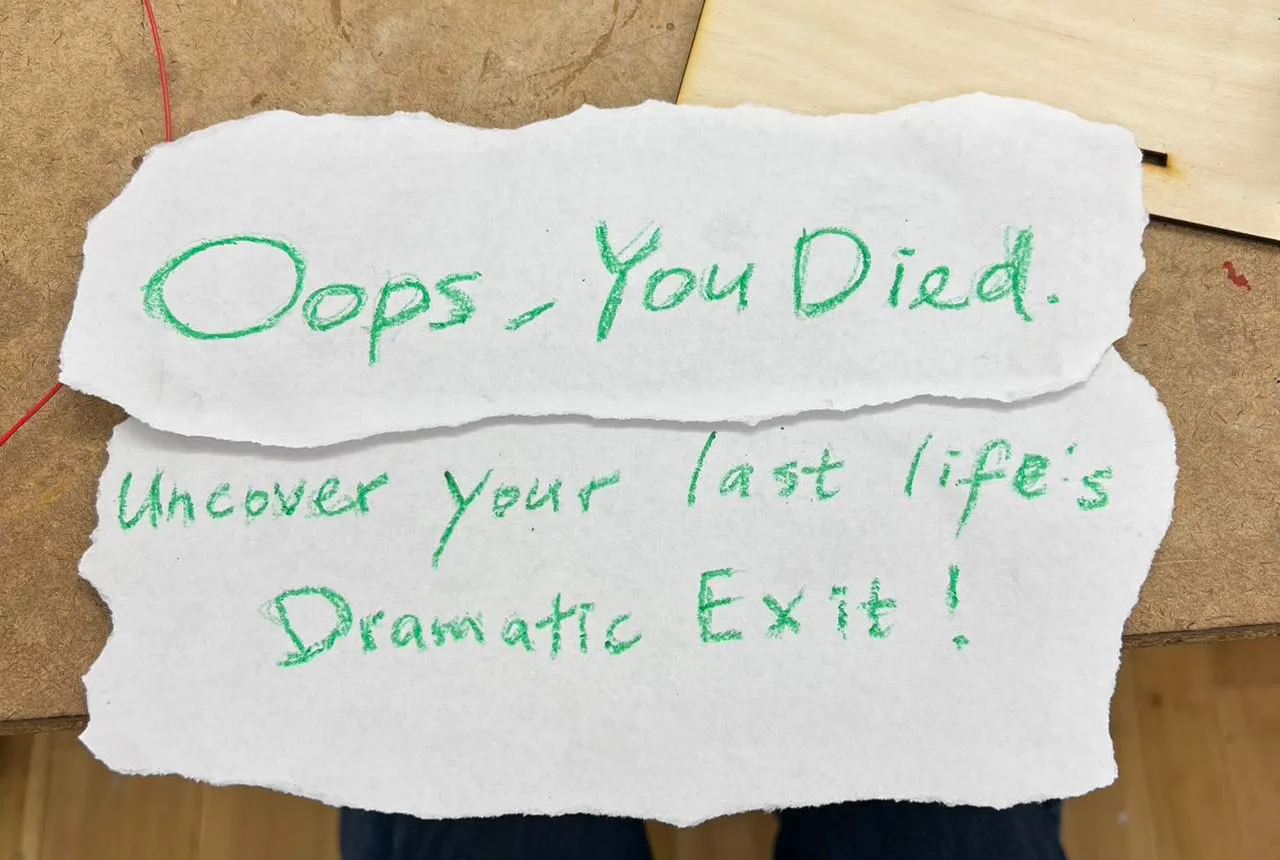 Oops, You Died.
Uncover your last life's
Dramatic Exit!